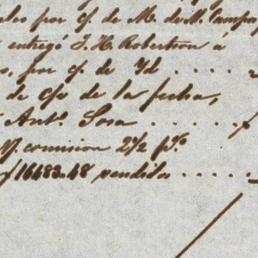 por c/. de M. de M. Campo
entregó J. H. Robertson á
por c/. de Id . . . .
de c/c de la fecha,
Anto. Sosa . . . . . .
comision 2 1/2 p%
16483.48 vendidos . . . . .